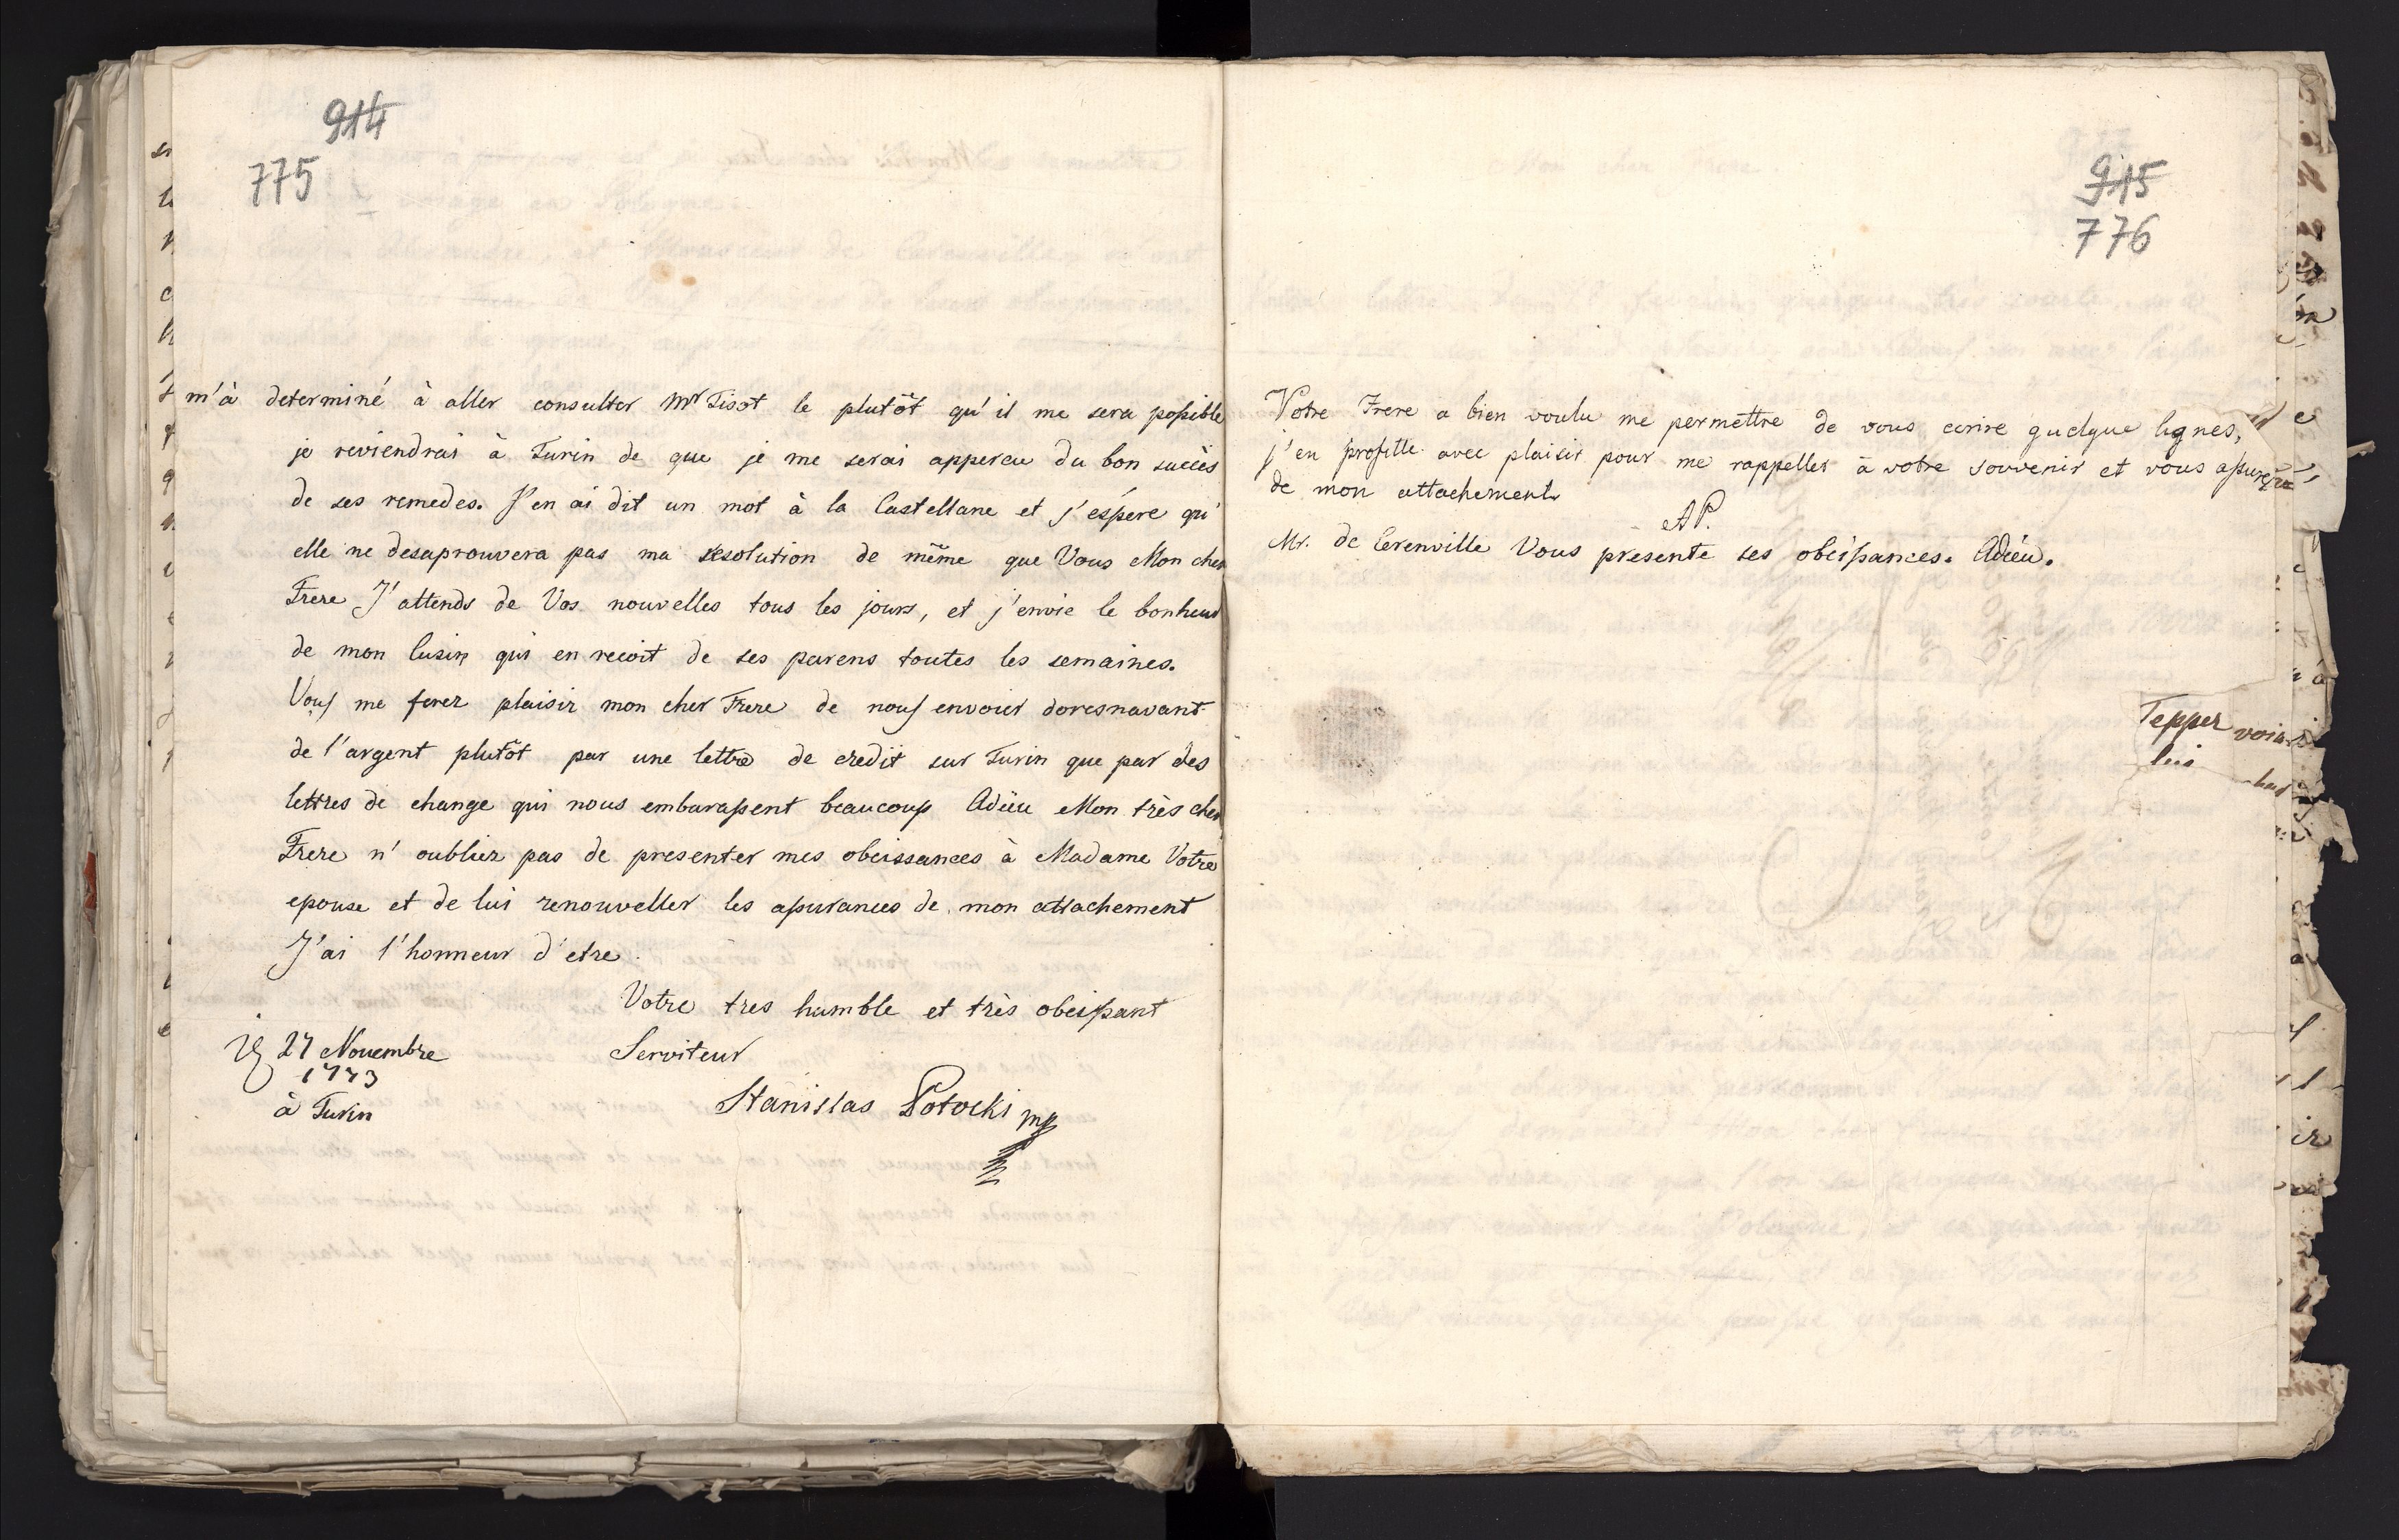 914
775
m'à determiné à aller consulter Mr Tisot le plutôt qu'il me sera possible
je reviendrai à Turin de que je me serai apperçu du bon succès
de ses remedes. J'en ai dit un mot à la Castellane et j'éspére qu'
elle ne desaprouvera pas ma resolution de même que Vous Mon cher
Frere J'attends de Vos nouvelles tous les jours, et j'envie le bonheur
de mon Cusin qui en recoit de ses parens toutes les semaines.
Vous me ferez plaisir mon cher Frere de nous envoier doresnavant
de l'argent plutôt par une lettre de credit sur Turin que par des
lettres de change qui nous embarassent beaucoup Adieu Mon très cher
Frere n'oubliez pas de presenter mes obeissances à Madame Votre
epouse et de lui renouveller les assurances de mon attachement
J'ai l'honneur d'etre
Votre tres humble et très obeissant
Serviteur
27 Novembre
1773
à Turin
Stanislas Potocki mp
915
776
Votre Frere a bien voulu me permettre de vous ecrire quelque lignes,
j'en profitte avec plaisir pour me rappeller à votre souvenir et vous assurer
de mon attachement
AP.
Mr. de Cerenville Vous presente ses obeissances. Adieu.
Tepper